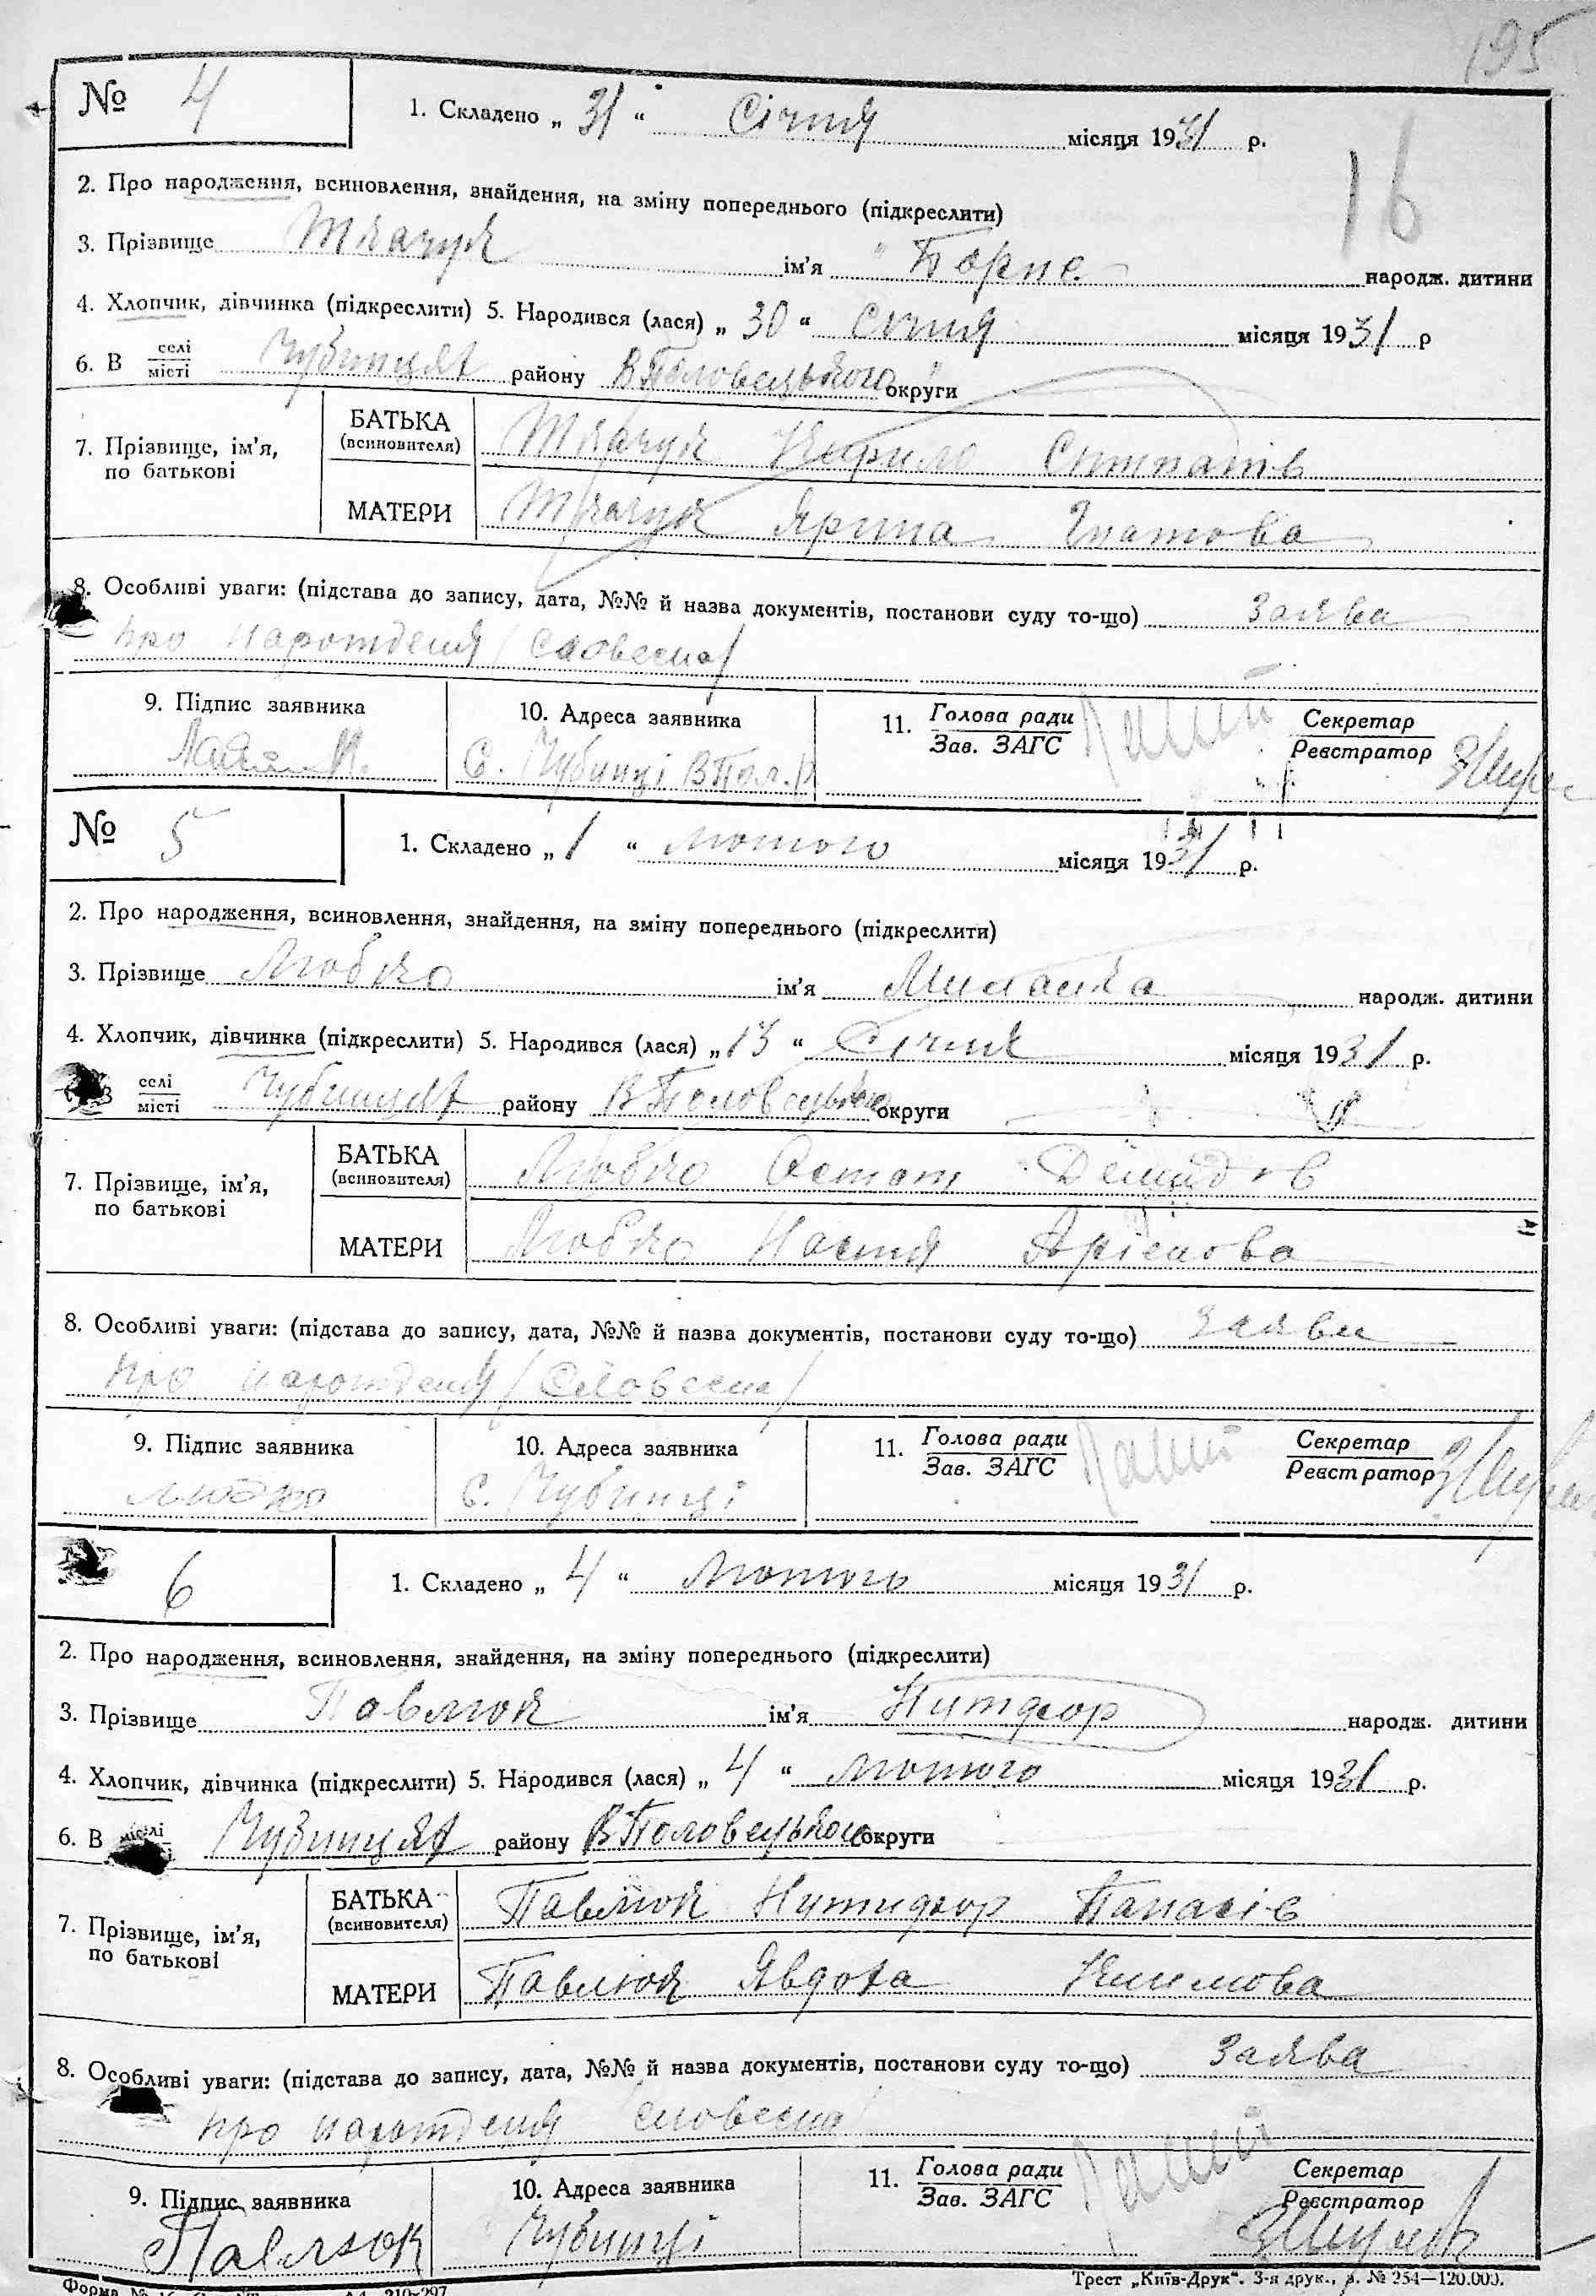 195
№ 4
1. Складено „ 31 “ Січня місяця 1931 р.
16
2. Про народження, всиновлення, знайдення, на зміну попереднього (підкреслити)
3. Прізвище Ткачук ім'я Борис народж. дитини
4. Хлопчик, дівчинка (підкреслити) 5. Народився (лася) „ 30 “ Січня місяця 1931 р
6. В селі/місті Чубинцях району ВПоловецького округи
БАТЬКА (всиновителя) Ткачук Кирило
7. Прізвище, ім'я, по батькові
МАТЕРИ Ткачук Ярина Гнатова
8. Особливі уваги: (підстава до запису, дата, №№ й назва документів, постанови суду то-що) Заява
про народтеня /словесна/
9. Підпис заявника 10. Адреса заявника 11. Голова ради/Зав. ЗАГС Секретар/Реєстратор
с. Чубинці ВПол. р
№ 5
1. Складено „ 1 “ лютого місяця 1931 р.
2. Про народження, всиновлення, знайдення, на зміну попереднього (підкреслити)
3. Прізвище Любко ім'я Миланка народж. дитини
4. Хлопчик, дівчинка (підкреслити) 5. Народився (лася) „ 13 “ Січня місяця 1931 р.
селі/місті Чубинцях району ВПоловецького округи
БАТЬКА (всиновителя) Любко Остап Демидов
7. Прізвище, ім'я, по батькові
МАТЕРИ Любко Настя
8. Особливі уваги: (підстава до запису, дата, №№ й назва документів, постанови суду то-що) Заява
про народтеня /Словесна/
9. Підпис заявника 10. Адреса заявника 11. Голова ради/Зав. ЗАГС Секретар/Реєстратор
Любко с. Чубинці
6
1. Складено „ 4 “ Лютого місяця 1931 р.
2. Про народження, всиновлення, знайдення, на зміну попереднього (підкреслити)
3. Прізвище Павлюк ім'я народж. дитини
4. Хлопчик, дівчинка (підкреслити) 5. Народився (лася) „ 4 “ лютого місяця 1931 р.
6. В Чубинцях району ВПоловецького округи
БАТЬКА (всиновителя) Павлюк Панасів
7. Прізвище, ім'я, по батькові
МАТЕРИ Павлюк Явдоха Климова
8. Особливі уваги: (підстава до запису, дата, №№ й назва документів, постанови суду то-що) Заява
про народтеня словесна/
9. Підпис заявника 10. Адреса заявника 11. Голова ради/Зав. ЗАГС Секретар/Реєстратор
Павлюк Чубинці
Трест „Київ-Друк“. 3-я друк., з. № 254—120.000.